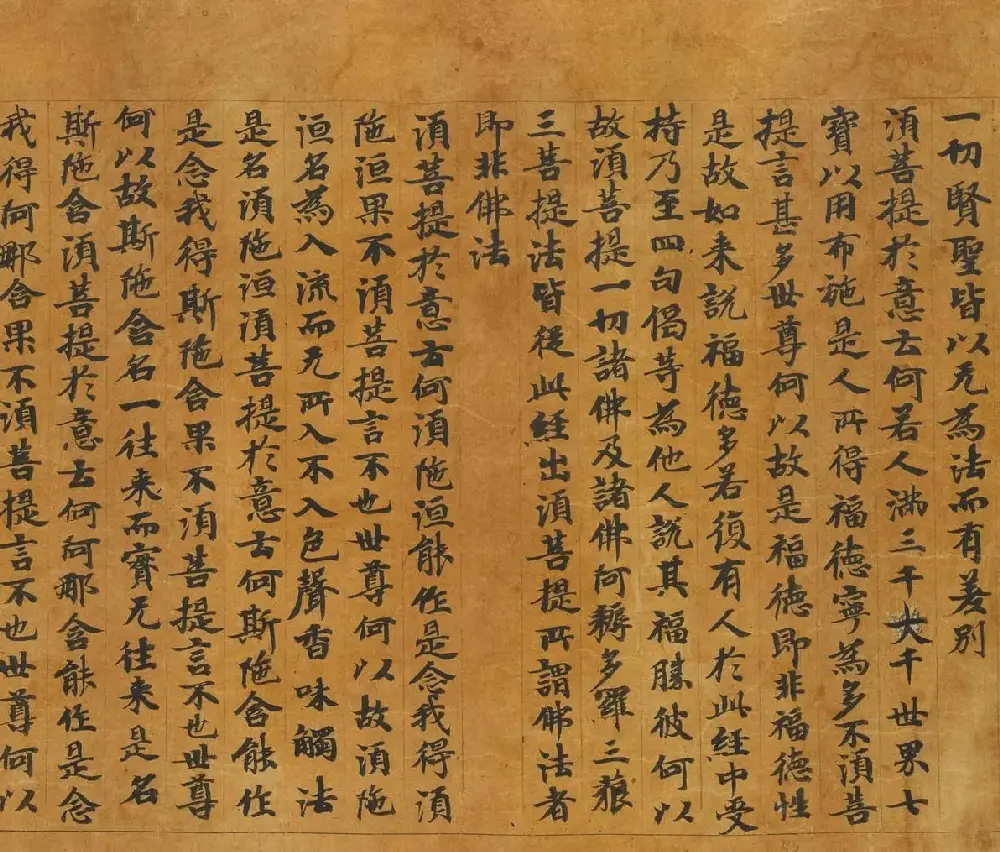 一切賢聖皆以无為法而有差別
須菩提於意云何若人滿三千大千世界七
寶以用布施是人所得福德寧為多不須菩
提言甚多世尊何以故是福德即非福德性
是故如来說福德多若復有人於此經中受
持乃至四句偈等為他人說其福勝彼何以
故須菩提一切諸佛及諸佛阿耨多羅三藐
三菩提法皆從此經出須菩提所謂佛法者
即非佛法
須菩提於意云何須陁洹能作是念我得須
陁洹果不須菩提言不也世尊何以故須陁
洹名為入流而无所入不入色聲香味觸法
是名須陁洹須菩提於意云何斯陁含能作
是念我得斯陁含果不須菩提言不也世尊
何以故斯陁含名一往来而實无往来是名
斯陁含須菩提於意云何阿那含能作是念
我得阿那含果不須菩提言不也世尊何以